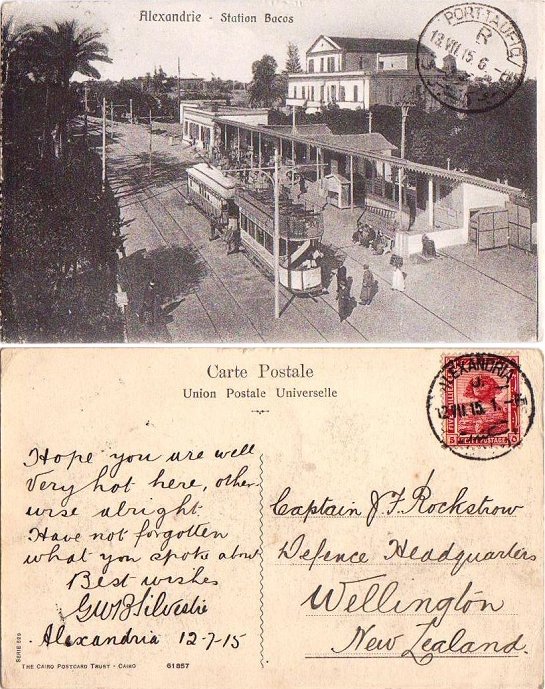 Alexandrie - Station Bacos
PORT TAUFIQ
R
13.VII.15.6
Carte Postale
Union Postale Universelle
ALEXANDRIA
12.VII.15.1
Hope you are well
Very hot here, other-
wise alright
Have not forgotten
what you spoke about
Best wishes
Alexandria 12-7-15
Captain J. F. Rockstrow
Defence Headquarters
Wellington
New Zealand.
THE CAIRO POSTCARD TRUST - CAIRO
61857